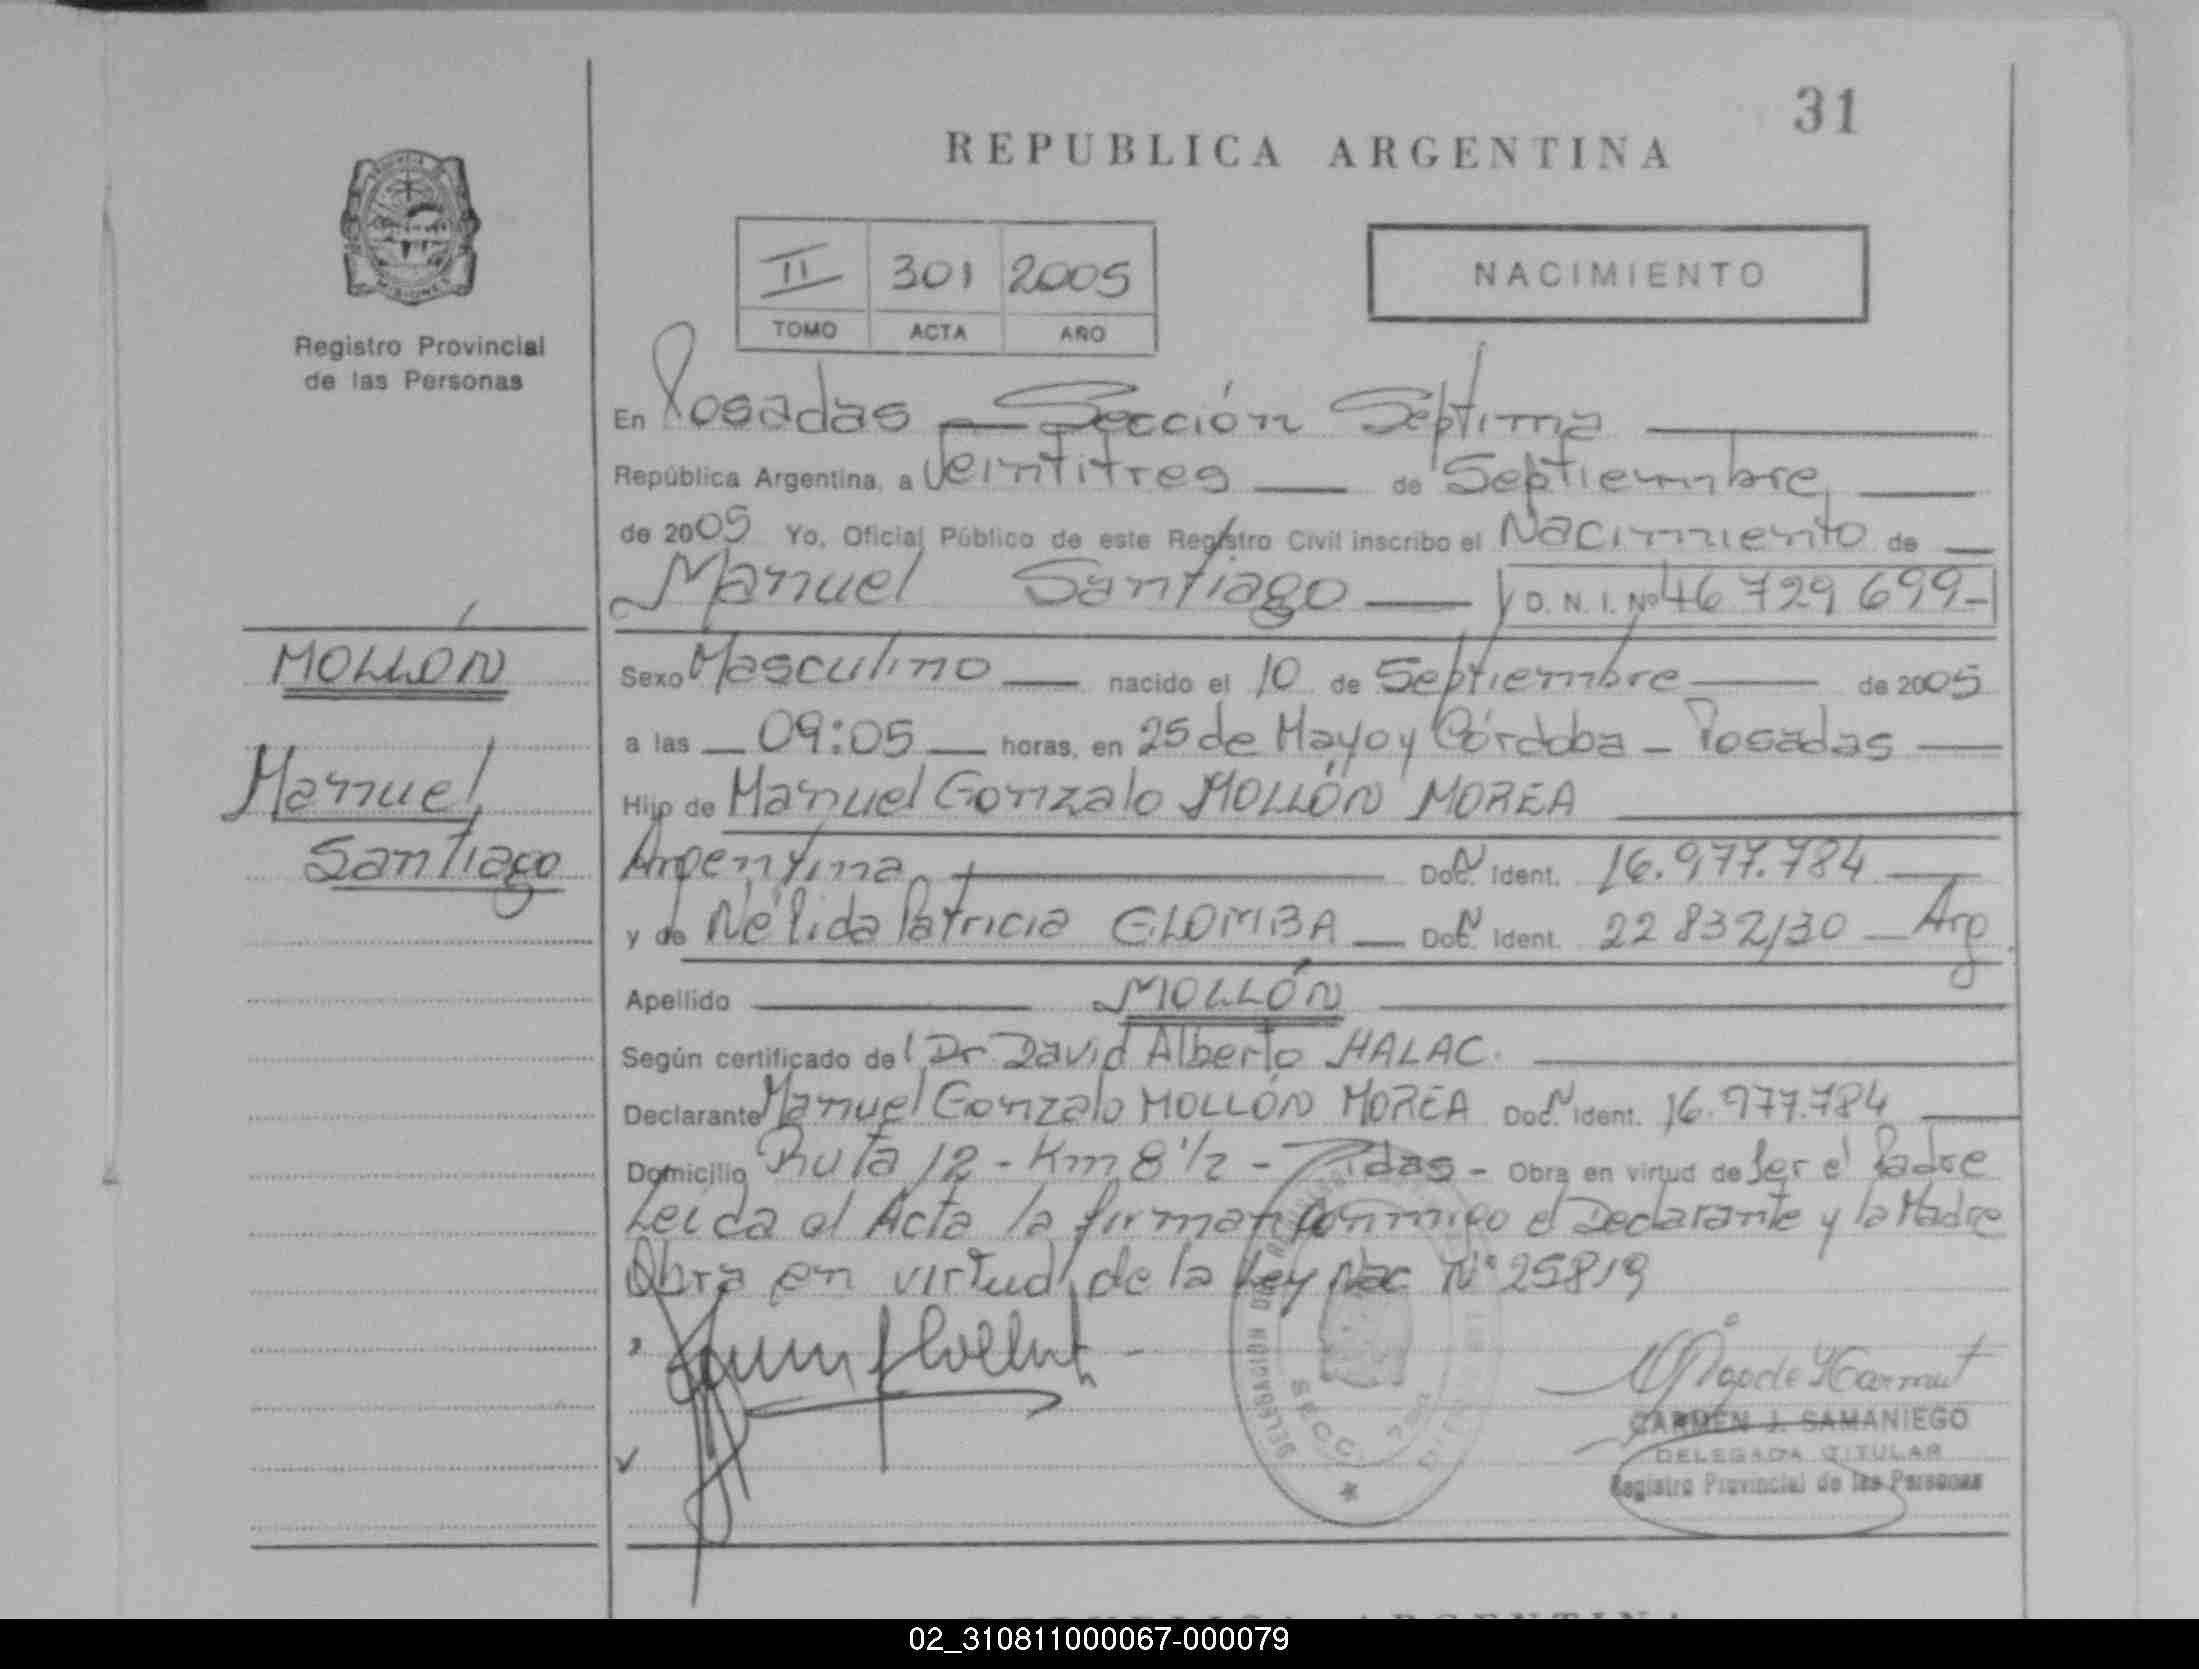 31
REPUBLICA ARGENTINA
MISIONES
Registro Provincial
de las Personas
II 301 2005
TOMO ACTA AÑO
NACIMIENTO
En Posadas — Sección Séptima
República Argentina, a Veintitres — de Septiembre
de 2005 Yo, Oficial Público de este Registro Civil inscribo el Nacimiento de
Manuel Santiago — D. N. I. Nº 46 729 699-
MOLLÓN
Manuel
Santiago
Sexo Masculino — nacido el 10 de Septiembre — de 2005
a las — 09:05 — horas, en 25 de Mayo y Córdoba - Posadas —
Hijo de Manuel Gonzalo MOLLÓN MOREA
Argentina — Doc. Ident. 16.977.784 —
y de Nélida Patricia GLOMBA — Doc. Ident. 22 832130 — Arg
Apellido — MOLLÓN
Según certificado del Dr. David Alberto HALAC.
Declarante Manuel Gonzalo MOLLÓN MOREA Doc. Ident. 16.977.784 —
Domicilio Ruta 12 - Km 8 1/2 - Pdas - Obra en virtud de Ser el Padre
Leida el Acta la firman conmigo el Declarante y la Madre
Obra en virtud de la Ley Nac Nº 25819
DELEGACION
SECC. 7
CARMEN J. SAMANIEGO
DELEGADA TITULAR
Registro Provincial de las Personas
REPUBLICA ARGENTINA
02_310811000067-000079